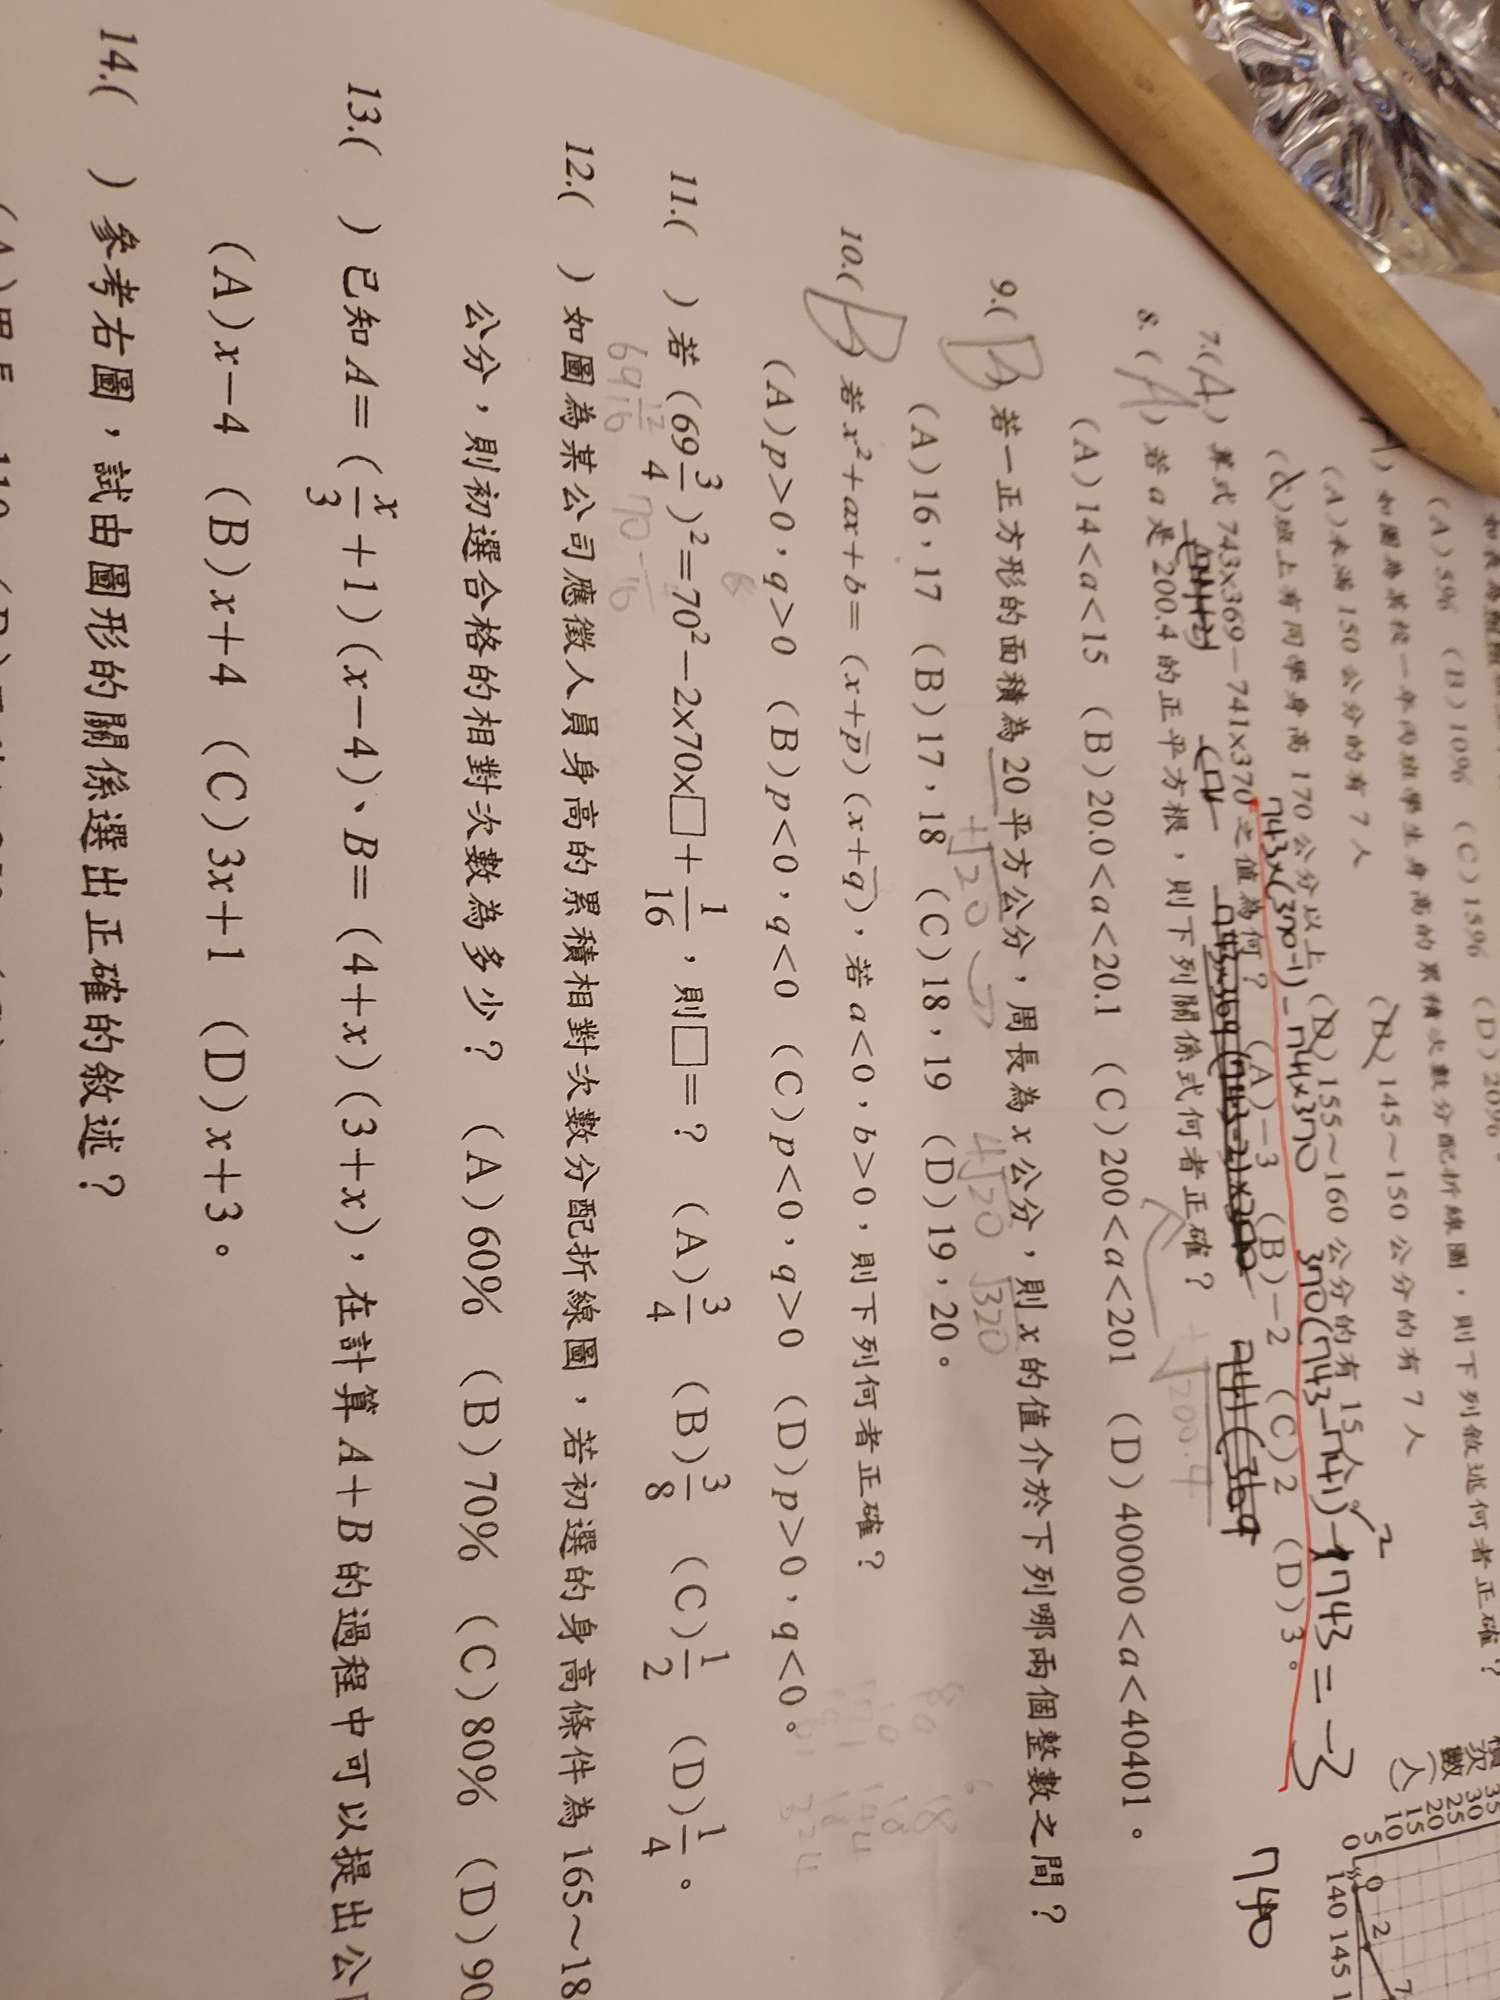 (A)5% (B)10% (C)15% (D)20%
如圖為某校一年丙班學生身高的累積次數分配折線圖,則下列敘述何者正確?
(A)未滿150公分的有7人 (B)145～150公分的有7人
(C)班上有同學身高170公分以上 (D)155～160公分的有15人
743×(370-1)-741×370 370(743-741)-743=-3
2
7.(A)算式743×369-741×370之值為何? (A)-3 (B)-2 (C)2 (D)3。
740
8.(A)若a是200.4的正平方根,則下列關係式何者正確?
√200.4
(A)14<a<15 (B)20.0<a<20.1 (C)200<a<201 (D)40000<a<40401。
9.(B)若一正方形的面積為20平方公分,周長為x公分,則x的值介於下列哪兩個整數之間?
+√20 4√20 √320
(A)16,17 (B)17,18 (C)18,19 (D)19,20。
10.(B)若x²+ax+b=(x+p)(x+q),若a<0,b>0,則下列何者正確?
(A)p>0,q>0 (B)p<0,q<0 (C)p<0,q>0 (D)p>0,q<0。
11.( )若(69 3/4)²=70²-2×70×□+1/16,則□=? (A)3/4 (B)3/8 (C)1/2 (D)1/4。
69 12/16
12.( )如圖為某公司應徵人員身高的累積相對次數分配折線圖,若初選的身高條件為165～18
公分,則初選合格的相對次數為多少? (A)60% (B)70% (C)80% (D)90
13.( )已知A=(x/3+1)(x-4)、B=(4+x)(3+x),在計算A+B的過程中可以提出公
(A)x-4 (B)x+4 (C)3x+1 (D)x+3。
14.( )參考右圖,試由圖形的關係選出正確的敘述?
積次數(人)
35
30
25
20
15
10
5
0
0 2 7
140 145